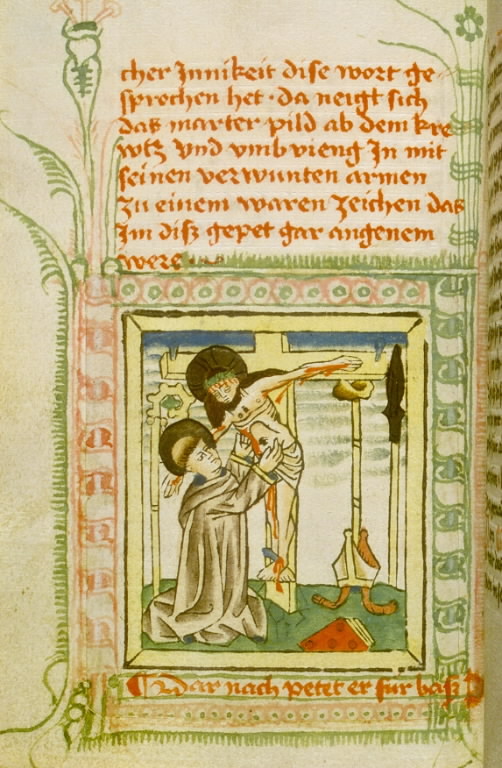 cher Jnnikeit dise wort ge
sprochen het · da neigt sich
das marter pild ab dem kre
wtz vnd vmb vieng Jn mit
seinen verwunten armen
Zu einem waren Zeichen das
Jm disz gepet gar angenem
were
Dar nach petet er fur basz